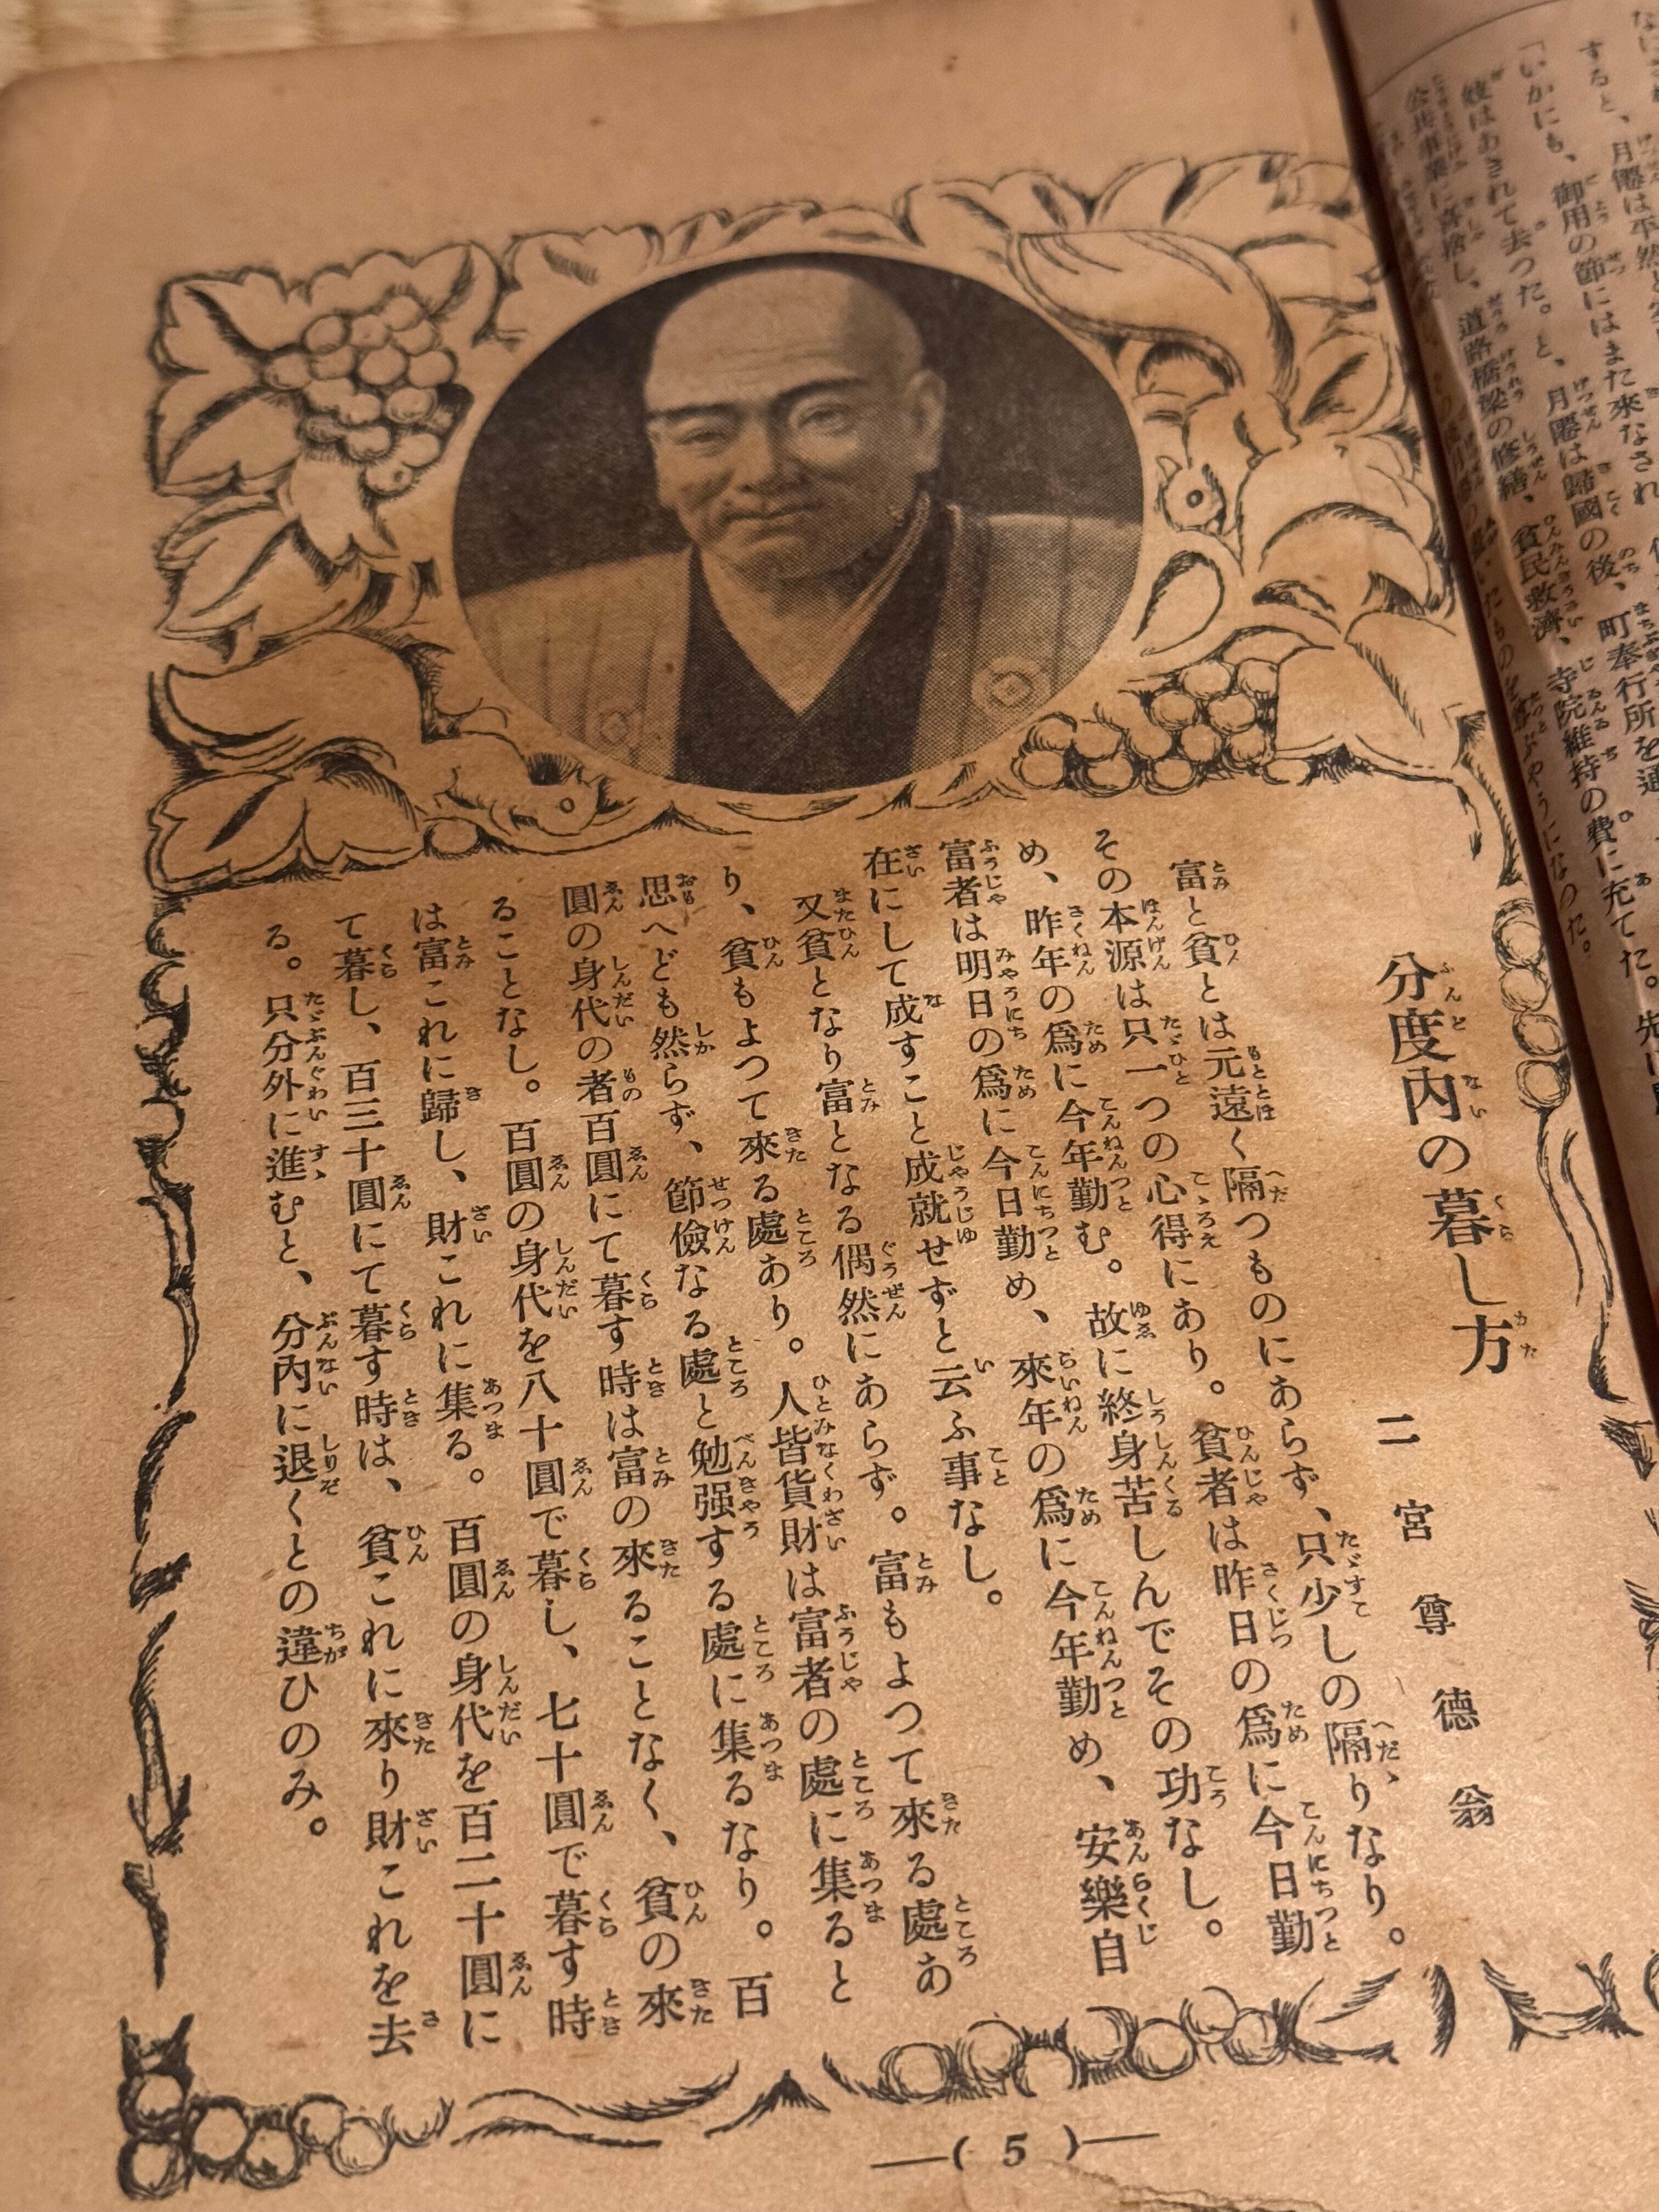 すると、月僊は平然と
「いかにも、御用の節にはまた來なされ
妓はあきれて去つた。と、月僊は歸國の後、町奉行所を通
公共事業に喜捨し、道路橋梁の修繕、貧民救濟、寺院維持の費に充てた。
分度內の暮し方
二宮尊德翁
富と貧とは元遠く隔つものにあらず、只少しの隔りなり。
その本源は只一つの心得にあり。貧者は昨日の爲に今日勤
め、昨年の爲に今年勤む。故に終身苦しんでその功なし。
富者は明日の爲に今日勤め、來年の爲に今年勤め、安樂自
在にして成すこと成就せずと云ふ事なし。
又貧となり富となる偶然にあらず。富もよつて來る處あ
り、貧もよつて來る處あり。人皆貨財は富者の處に集ると
思へども然らず、節儉なる處と勉强する處に集るなり。百
圓の身代の者百圓にて暮す時は富の來ることなく、貧の來
ることなし。百圓の身代を八十圓で暮し、七十圓で暮す時
は富これに歸し、財これに集る。百圓の身代を百二十圓に
て暮し、百三十圓にて暮す時は、貧これに來り財これを去
る。只分外に進むと、分內に退くとの違ひのみ。
―( 5 )―